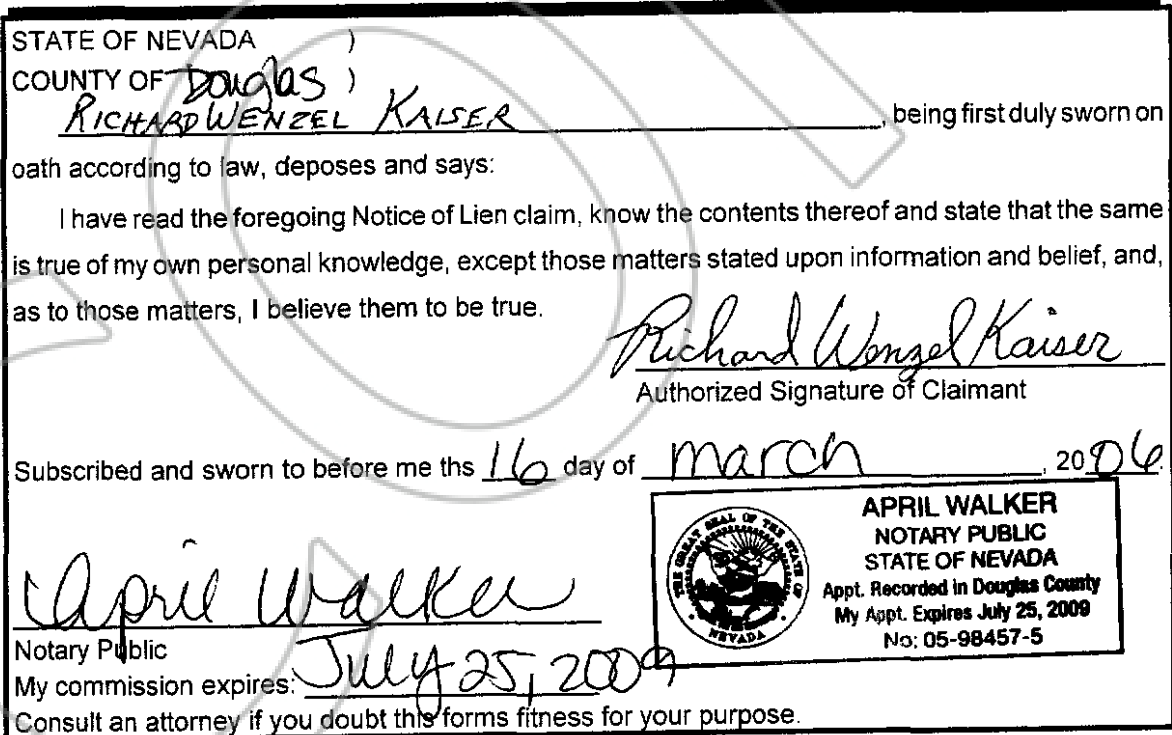 STATE OF NEVADA )
COUNTY OF Douglas )
RICHARD WENZEL KAISER, being first duly sworn on
oath according to law, deposes and says:
I have read the foregoing Notice of Lien claim, know the contents thereof and state that the same
is true of my own personal knowledge, except those matters stated upon information and belief, and,
as to those matters, I believe them to be true.
Richard Wenzel Kaiser
Authorized Signature of Claimant
Subscribed and sworn to before me ths 16 day of march, 2006.
APRIL WALKER
NOTARY PUBLIC
STATE OF NEVADA
Appt. Recorded in Douglas County
My Appt. Expires July 25, 2009
No: 05-98457-5
THE GREAT SEAL OF THE STATE OF
NEVADA
April Walker
Notary Public
My commission expires: July 25, 2009
Consult an attorney if you doubt this forms fitness for your purpose.